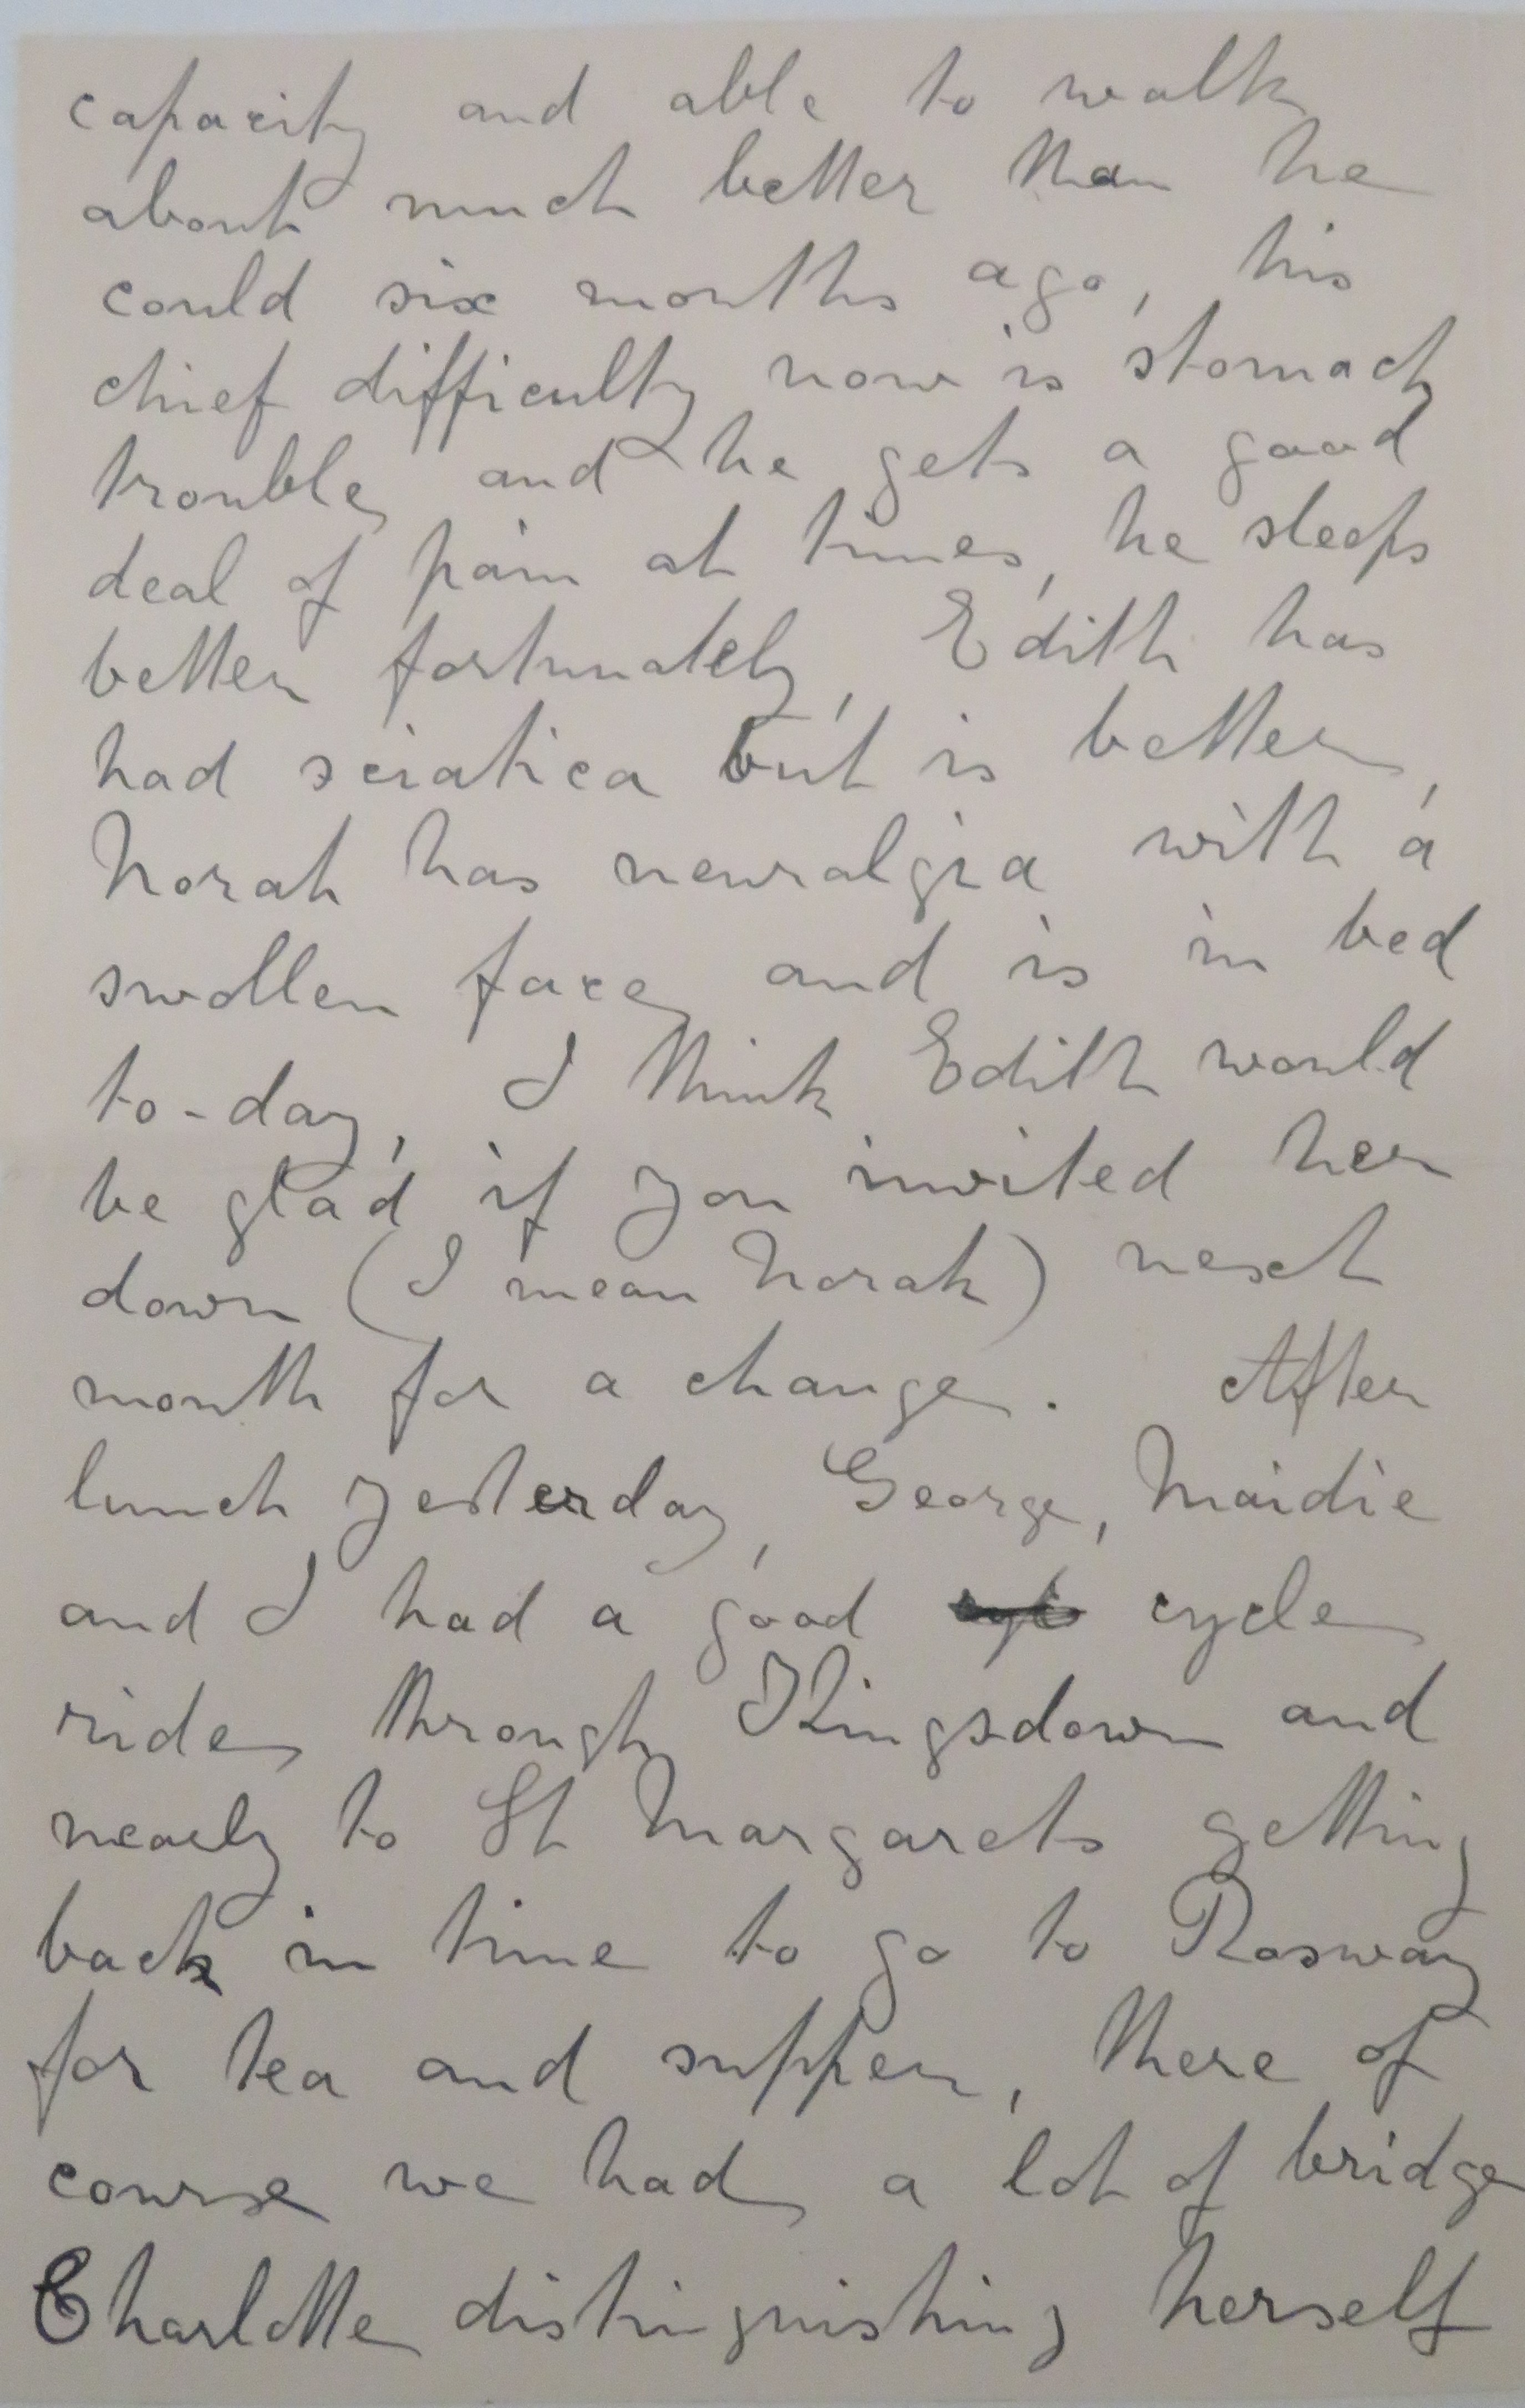 capacity and able to walk
about much better than he
could six months ago, his
chief difficulty now is stomach
trouble and he gets a good
deal of pain at times, he sleeps
better fortunately, Edith has
had sciatica but is better,
Norah has neuralgia with a
swollen face and is in bed
to-day, I think Edith would
be glad if you invited her
down (I mean Norah) next
month for a change. After
lunch yesterday, George, Maidie
and I had a good cycle
ride through Kingsdown and
nearly to St Margarets getting
back in time to go to Rosway
for tea and supper, there of
course we had a lot of bridge
Charlotte distinguishing herself